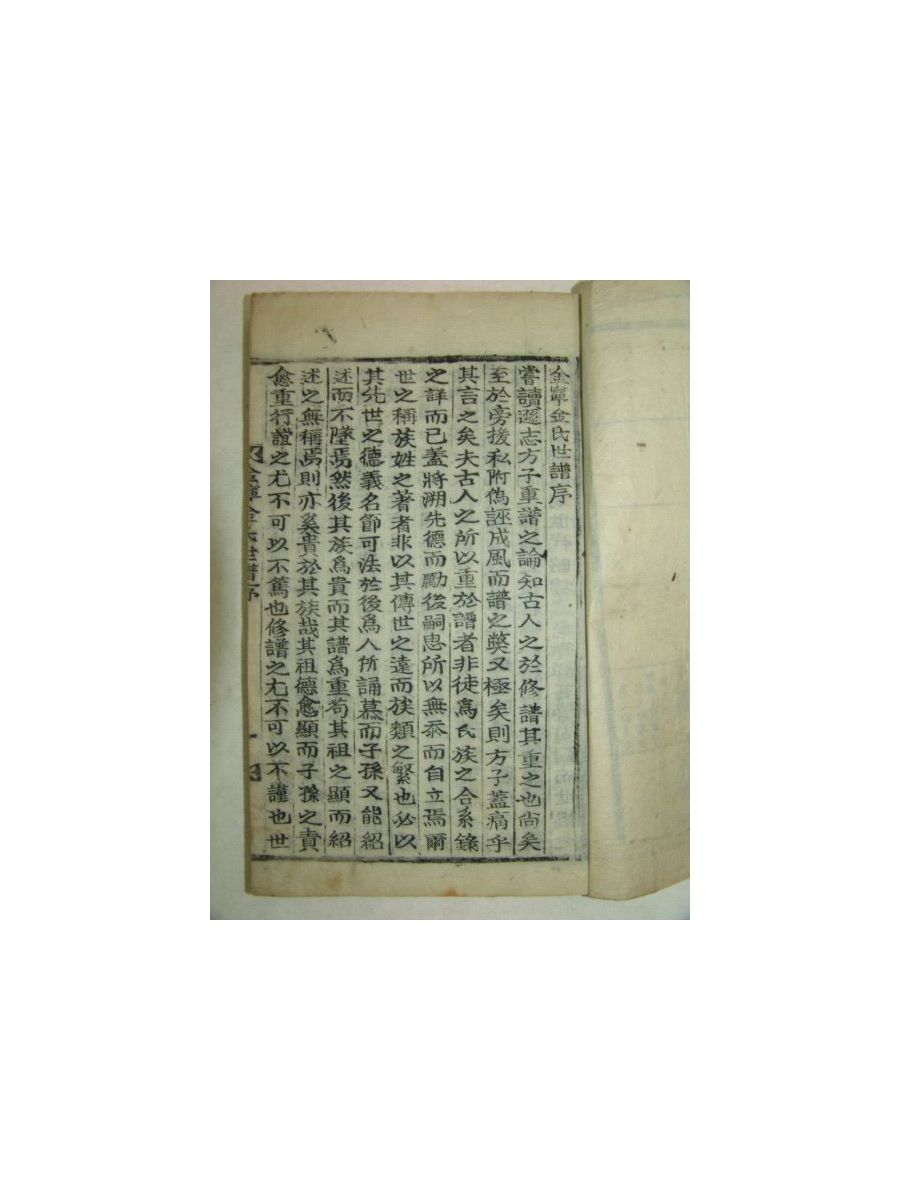 金寧金氏世譜序
嘗讀遜志方子重譜之論知古人之於修譜其重之也尚矣
至於旁援私附偽誣成風而譜之獘又極矣則方子蓋病乎
其言之矣夫古人之所以重於譜者非徒爲氏族之合系錄
之詳而已蓋將溯先德而勵後嗣思所以無忝而自立焉爾
世之稱族姓之著者非以其傳世之遠而族類之繁也必以
其先世之德義名節可法於後爲人所誦慕而子孫又能紹
述而不墜焉然後其族爲貴而其譜爲重苟其祖之顯而紹
述之無稱焉則亦奚貴於其族哉其祖德愈顯而子孫之責
愈重行誼之尤不可以不篤也修譜之尤不可以不謹也世
金寧金氏世譜序 一